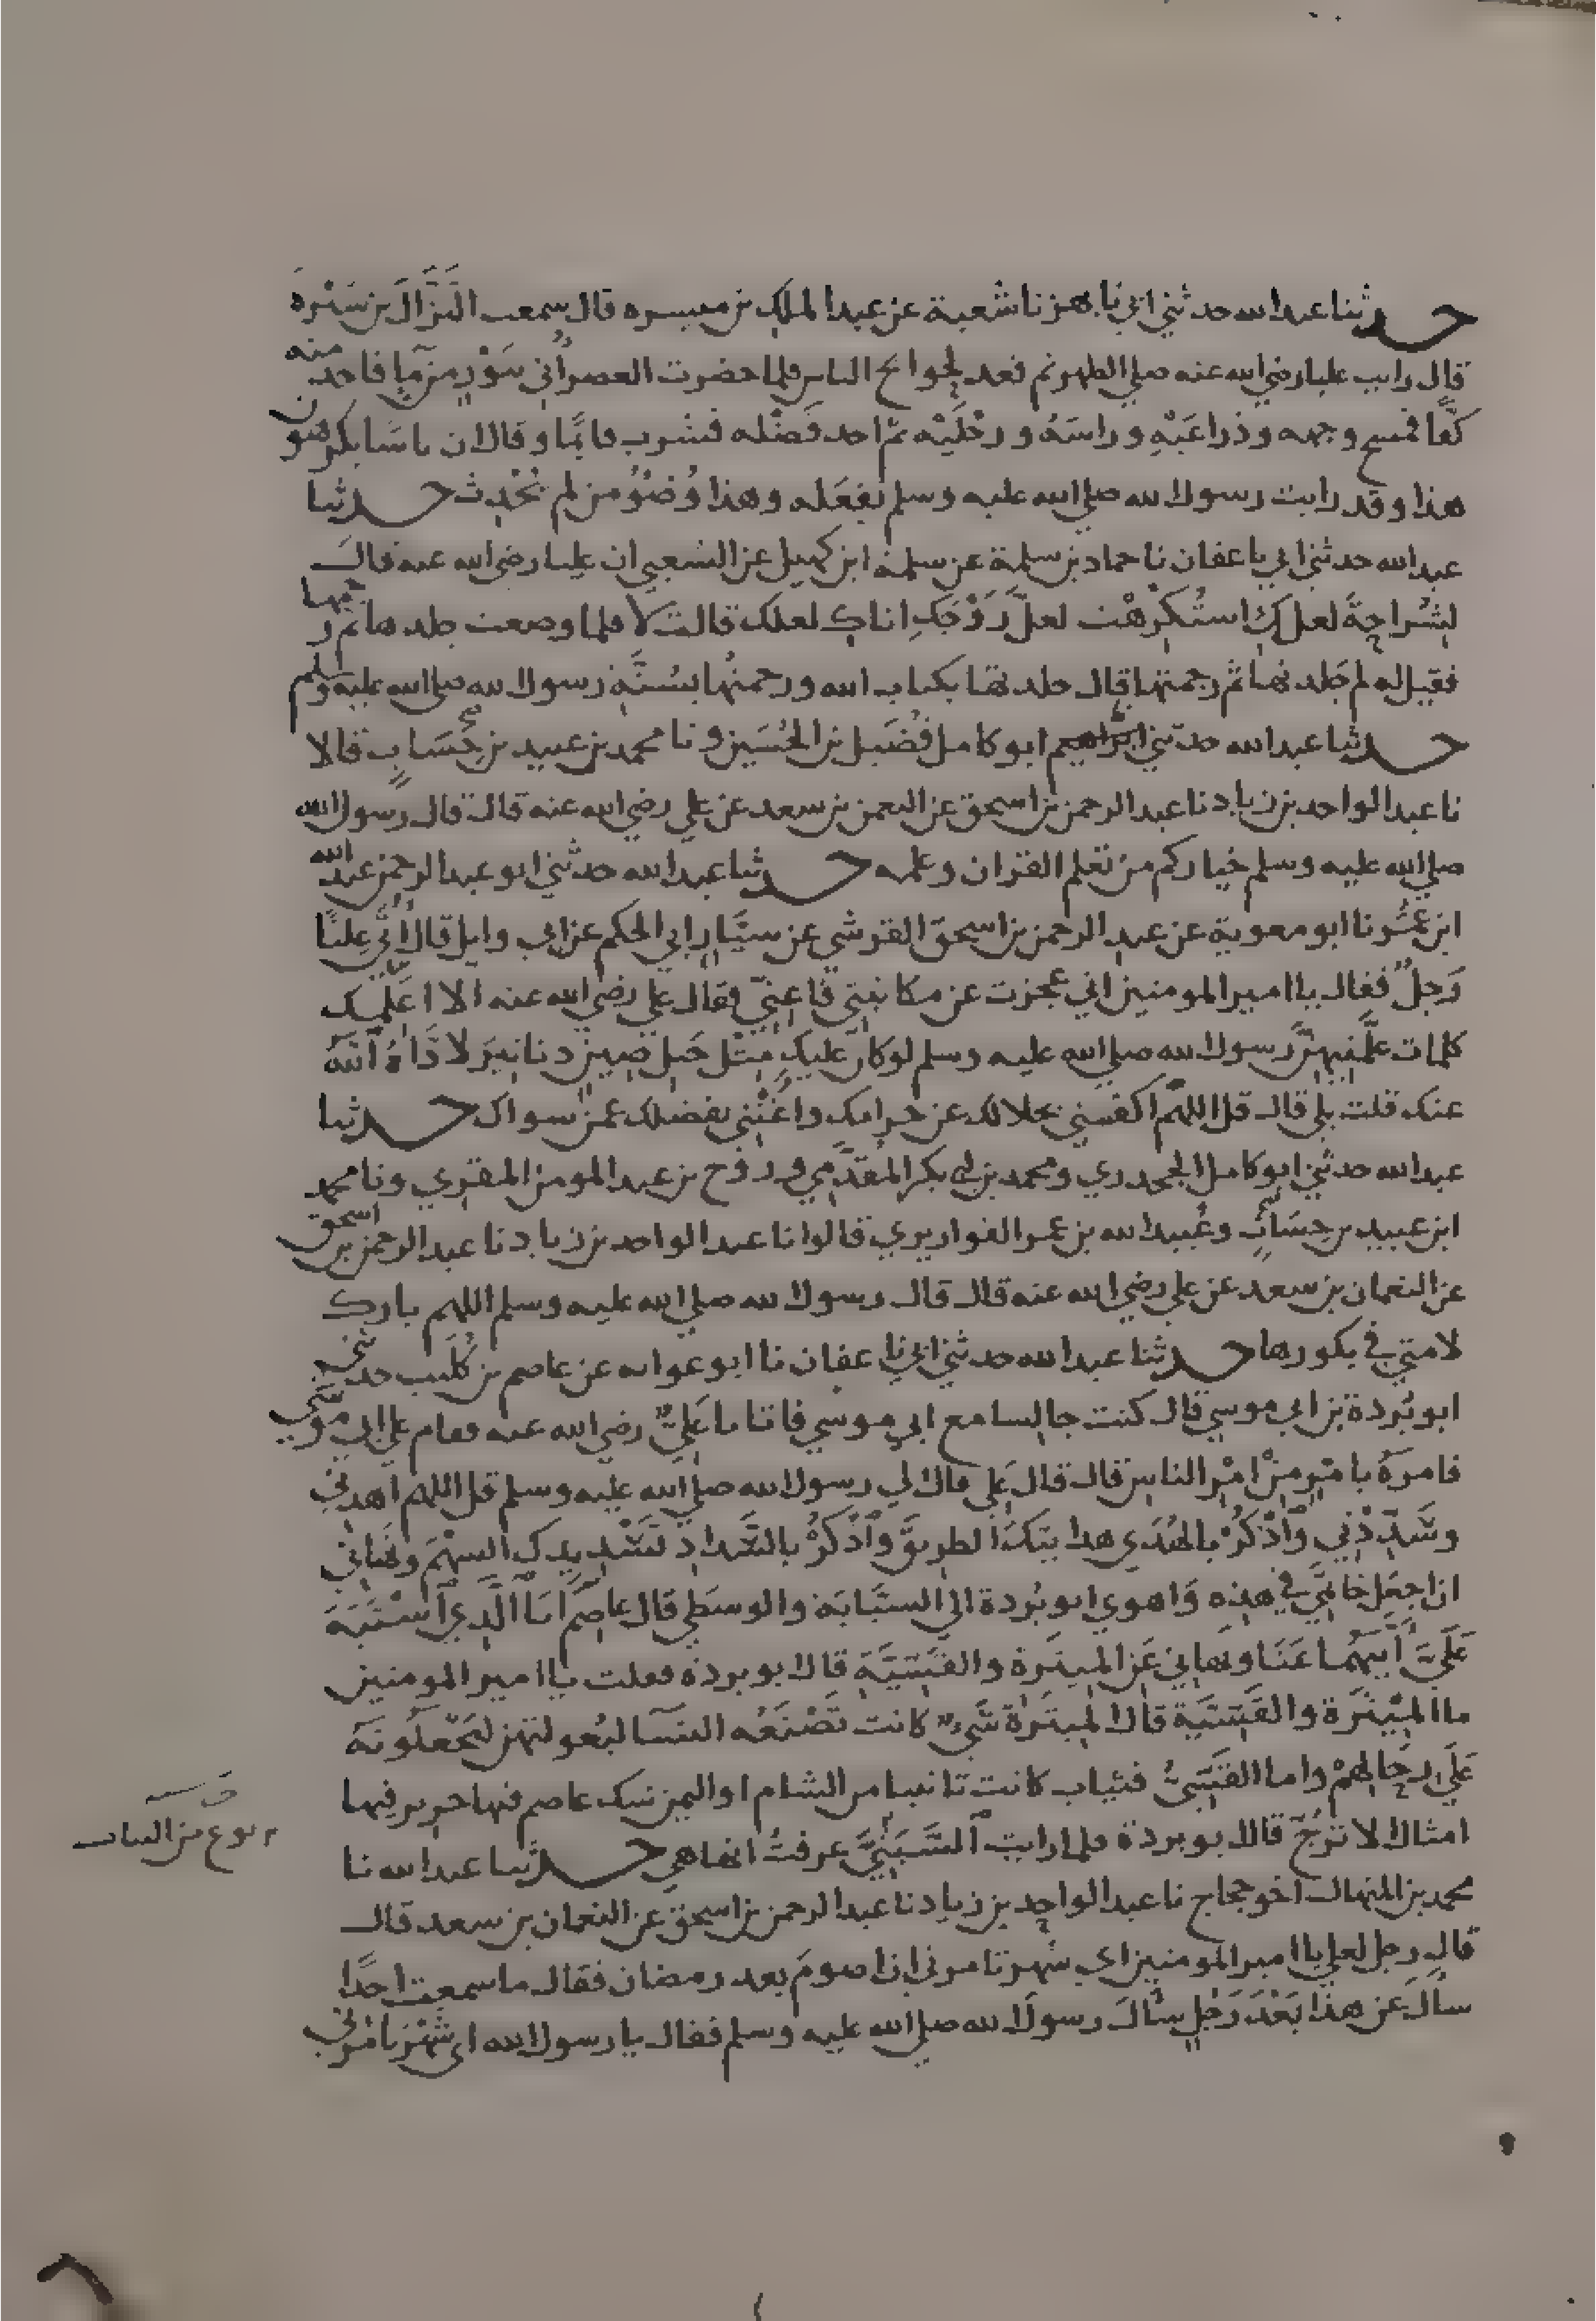 حدثنا عبد الله حدثني ابي نا بهز نا شعبة عن عبد الملك بن ميسره قال سمعت النَّزَّالَ بن سَبْرة
قال رايت عليا رضي الله عنه صلي الظهر ثم قعد لحوايج الناس فلما حضرت العصر أُتي بتَوْرٍ من مآءٍ فاخذ منه
كفًّا فمسح وجهه وذراعَيْهِ وراسَهُ ورجْلَيْه ثم اخذ فَضْله فشرب قايمًا وقال ان ناسًا يكرهون
هذا وقد رايت رسول الله صلي الله عليه وسلم يفعَله وهذا وُضُوُ من لم يُحْدِث حدثنا
عبد الله حدثني ابي نا عفان نا حماد بن سلمة عن سلمة ابن كهيل عن الشعبي ان عليا رضي الله عنه قال
لِشُراحةَ لعلكِ استُكرِهْت لعلَّ زَوْجَكِ اتاكِ لعلك قالت لا فلما وضعت جلدها ثم رجمها
فقيل له لم جَلدتها ثم رجمتها قال جلدتها بكتاب الله ورجمتُها بسُنَّةِ رسول الله صلي الله عليه وسلم
حدثنا عبد الله حدثني ابو كامل فُضَيل بن الحُسَين ونا محمد بن عبيد بن حِسَابٍ قالا
نا عبد الواحد بن زياد نا عبد الرحمن بن اسحق عن النعمن بن سعد عن علي رضي الله عنه قال قال رسول الله
صلي الله عليه وسلم خياركم من تعلم القران وعلمه حدثنا عبد الله حدثني ابو عبد الرحمن عبد الله
ابن عُمَر نا ابو معوية عن عبد الرحمن بن اسحق القرشي عن سيَّارٍ ابي الحكم عن ابي وايل قال أتي عليًّا
رَجلٌ فقال يا امير المومنين اني عجزت عن مكاتبتي فأعِنِّي فقال علي رضي الله عنه الا اعَلِّمك
كلمات علَّمَنِيهنَّ رسول الله صلي الله عليه وسلم لو كان عليك مِثْل جَبل صِيرٍ دنانيرَ لاَدَّاهُ اللهُ
عنك قلت بلي قال قل اللهم اكفني بحلالك عن حرامك واغْنني بفضلك عمن سواك حدثنا
عبد الله حدثني ابو كامل الجحدري ومحمد بن ابي بكر المُقَدَّمي وروح بن عبد المومن المقري ونا محمد
ابن عبيد بن حِسَابٍ وعُبيد الله بن عمر القواريري قالوا نا عبد الواحد بن زياد نا عبد الرحمن بن اسحق
عن النعمان بن سعد عن علي رضي الله عنه قال قال رسول الله صلي الله عليه وسلم اللهم بارك
لامتي في بكورها حدثنا عبد الله حدثني ابي نا عفان نا ابو عوانه عن عاصم بن كُلَيب حدثني
ابو بُردة بن ابي موسي قال كنت جالسا مع ابي موسي فاتانا عَليٌّ رضي الله عنه فقام علي ابي موسي
فامرَهُ بامْرٍ مِنْ امْرِ الناسِ قال قال عَلي قال لي رسول الله صلي الله عليه وسلم قل اللهم اهدني
وسَدِّدْني وَاذْكُرْ بالهُدَي هدايتكَ الطريقَ وَاذْكرْ بالسَّدادِ تَسْديدك السهْمَ ونَهاني
ان اجعَل خاتمي في هذه وَاهوي ابو بُردة الي السبَّابَة والوسطَي قال عاصم انا الَّذي اشْتَبَهَ
عَلَيَّ أيتهُما عَنَا ونهاني عَن المِيثَرة والقَسِّيَّةِ قال ابو برده فقلت يا امير المومنين
ما المِيْثَرَة والقَسِّيَّة قال المِيثَرَة شَيءٌ كانت تَصْنَعُه النسآ لبُعولتهن يَجْعَلونَهُ
عَلَي رحَالهمْ واما القَسِّيُّ فثياب كانت تاتينا من الشام او اليمن شك عاصم فيها حرير فيها
امثال الاترُجّ قال ابو بردة فلما رايت السَّبَنيَّ عرفتُ انها هي حدثنا عبد الله نا
نوع من الثياب
محمد بن المنهال اخو حجاج نا عبد الواحد بن زياد نا عبد الرحمن بن اسحق عن النعمان بن سعد قال
قال رجل لعلي يا امير المومنين اي شهر تامرني ان اصومَ بعد رمضان فقال ما سمعت احدًا
سال عن هذا بَعْدَ رَجلٍ سالَ رسولَ الله صلي الله عليه وسلم فقال يا رسول الله اي شَهْرٍ تامرني